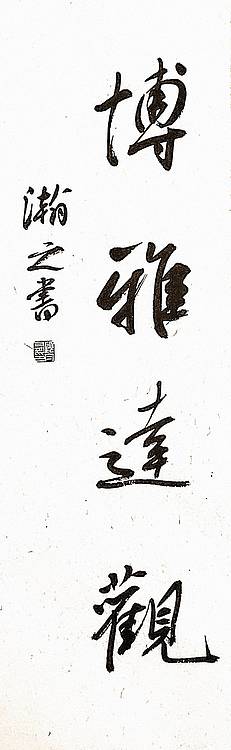 博雅達觀
瀚之書